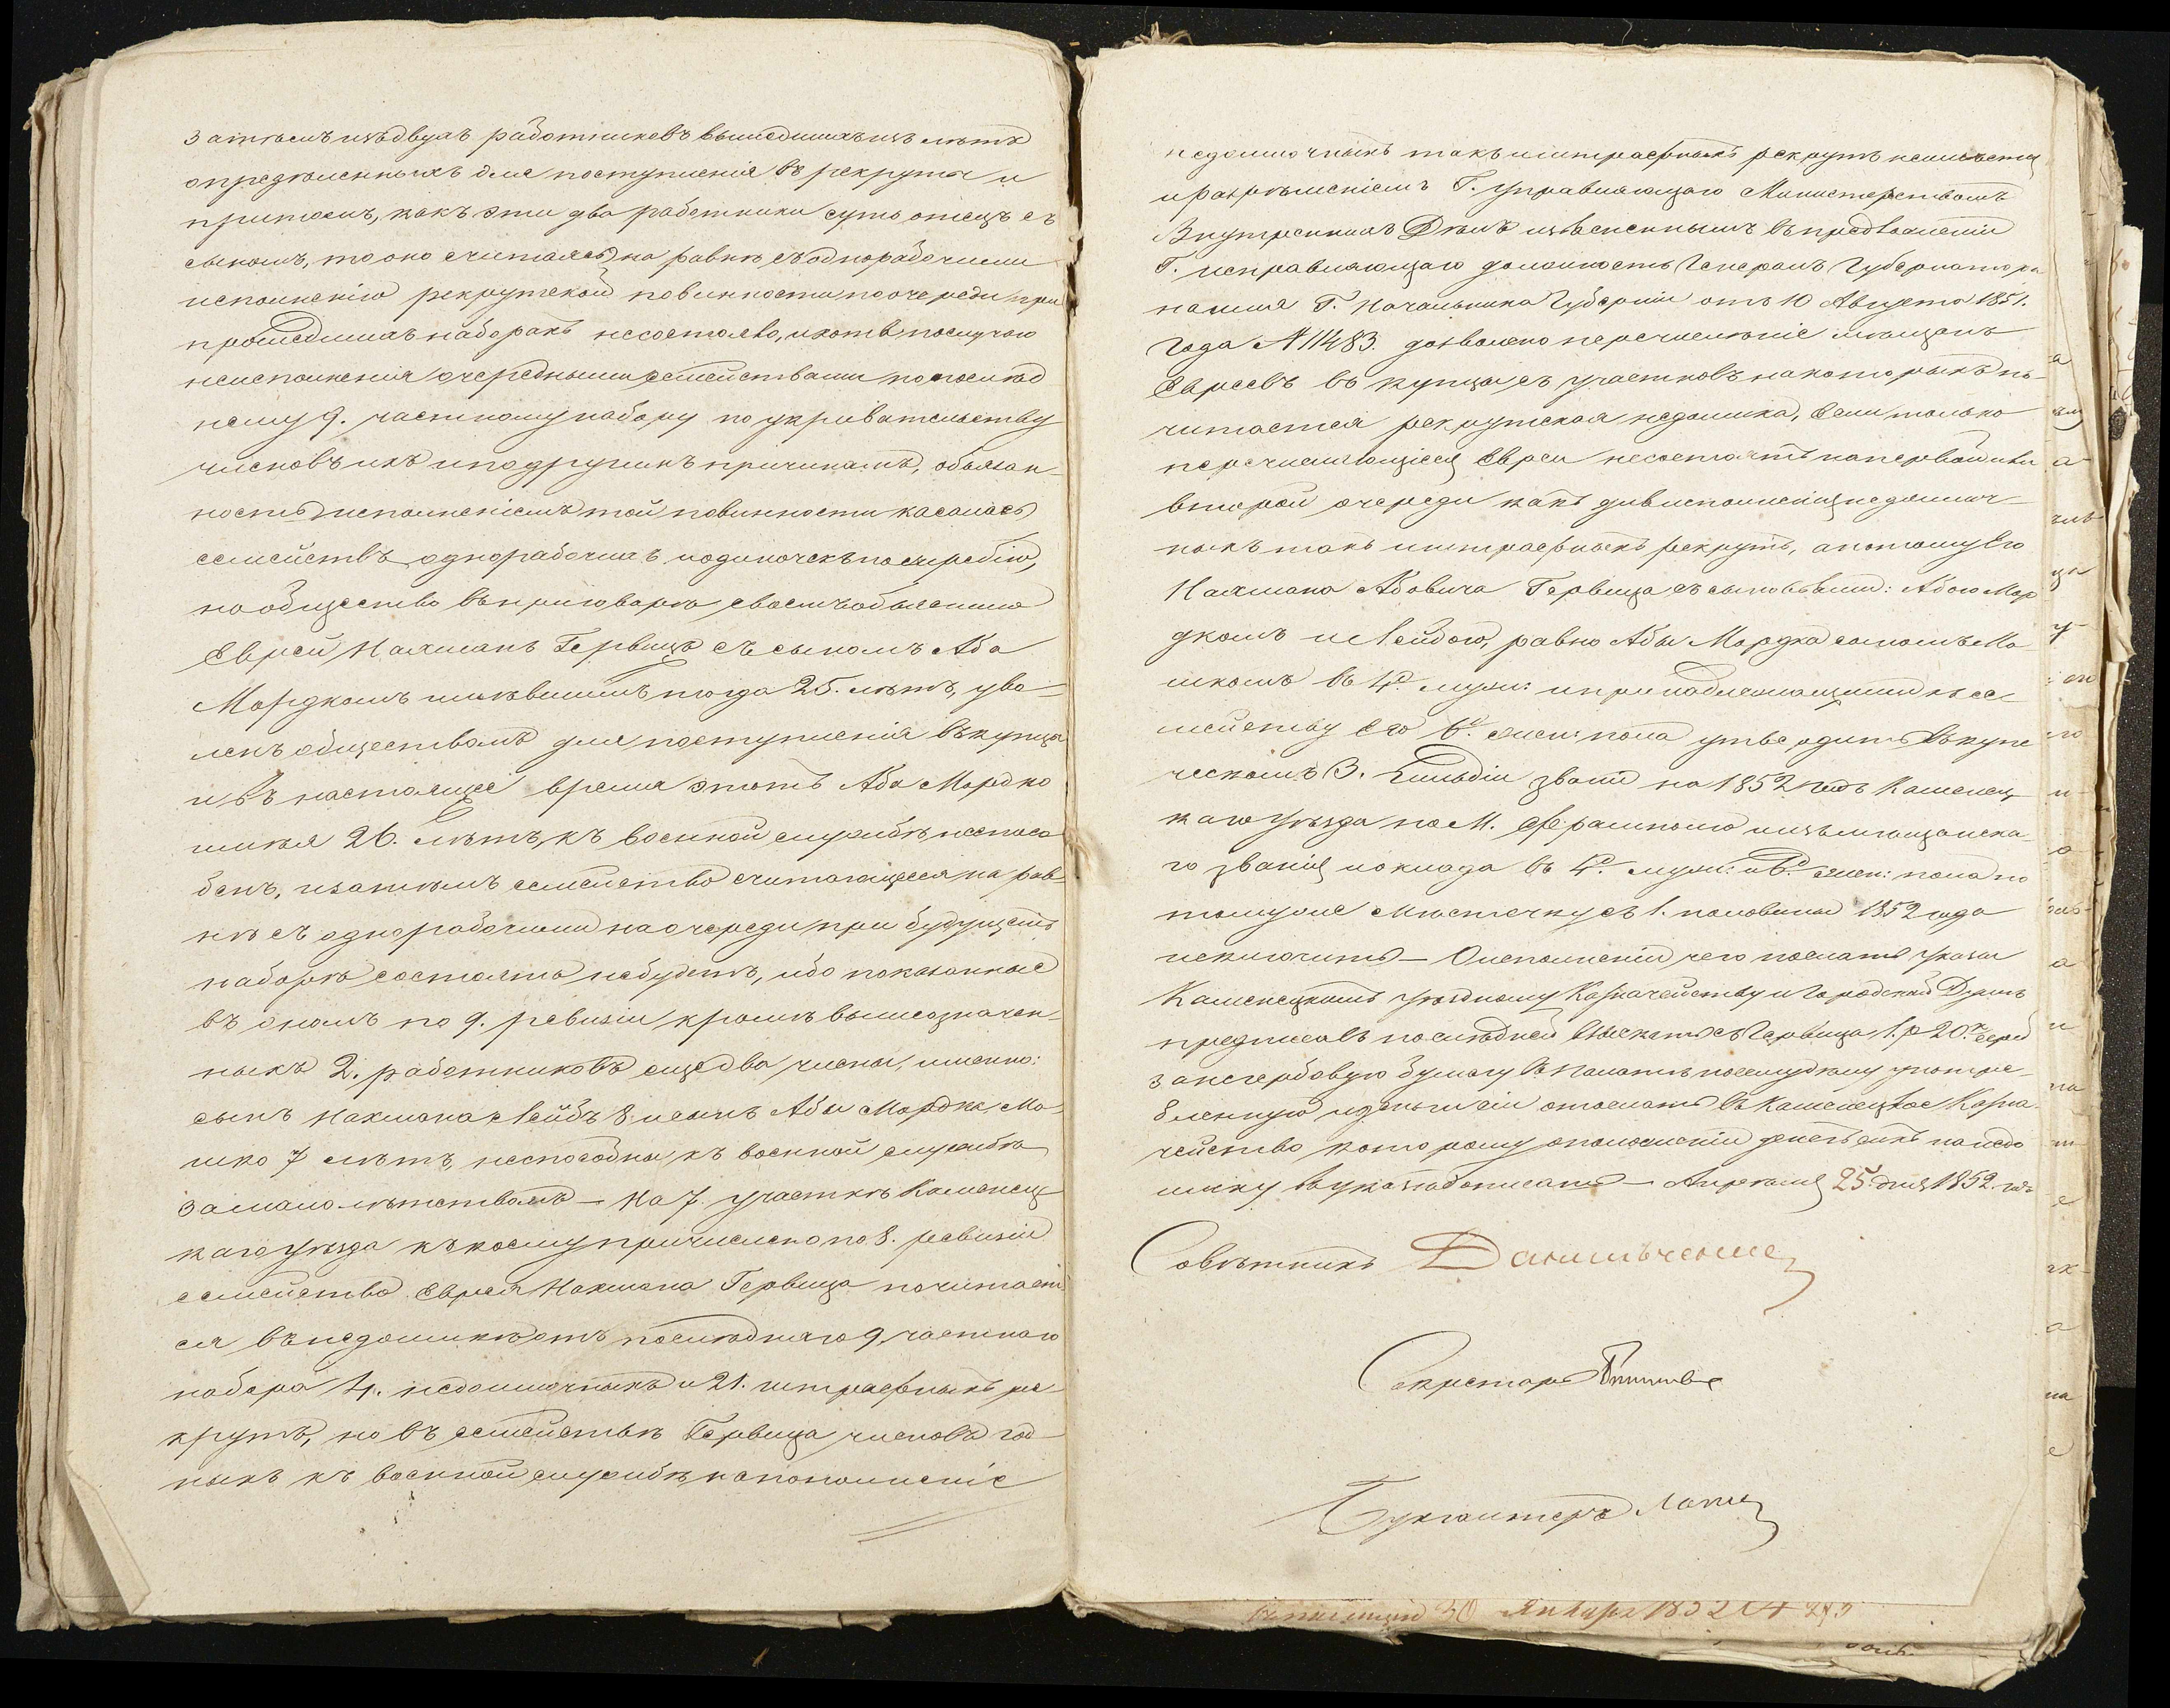 затѣмъ изъ двухъ работниковъ вышедшихъ изъ лѣтъ
опредѣленныхъ для поступленія въ рекруты и
притомъ, какъ эти два работники суть отецъ съ
сыномъ, то оно считаясь на равнѣ съ однорабочими
исполненію рекрутской повинности по очереди при
прошедшихъ наборахъ несостояло, и хотя по случаю
неисполненія очередными семействами по послѣд
нему 9. частному набору по укривательству
членовъ ихъ и по другимъ причинамъ, обязан-
ность исполненіемъ той повинности касалась
семействъ однорабочихъ и одиночекъ по жребію,
но общество въ приговорѣ своемъ объяснило
Еврей Нахманъ Гервицъ съ сыномъ Аба
Мордкомъ имѣвшимъ тогда 25. лѣтъ, уво-
ленъ обществомъ для поступленія въ купцы
и въ настоящее время этотъ Аба Мордко
имѣя 26. лѣтъ, къ военной службѣ неспосо
бенъ, и затѣмъ семейство считающееся на рав-
нѣ съ однорабочими на очереди при будущемъ
наборѣ состоять небудетъ, ибо показанные
въ ономъ по 9. ревизіи кромѣ вышеозначен-
ныхъ 2. работниковъ еще два члены, именно:
сынъ Нахмана Лейбъ 8 и сынъ Абы Мордка Мо-
шко 7 лѣтъ, неспособны къ военной службѣ
за малолѣтствомъ — На 7. участкѣ Каменец
каго уѣзда къ коему причислено по 8. ревизіи
семейство Еврея Нахмана Гервица почитает
ся въ недоимкѣ отъ послѣдняго 9. частнаго
набора 4. недоимочныхъ и 21. штрафныхъ ре-
крутъ, но въ семействѣ Гервица членовъ год-
ныхъ къ военной службѣ на пополненіе
недоимочныхъ такъ и штрафныхъ рекрутъ неимѣется
и разрѣшеніемъ Г. управляющаго Министерствомъ
Внутреннихъ Дѣлъ изъясненнымъ въ предложеніи
Г. исправляющаго должность Генералъ Губернатора
на имя Г. Начальника Губерніи отъ 10 Августа 1851.
года N 11483. дозволено перечисленіе мѣщанъ
Евреевъ въ купцы съ участковъ на которыхъ по-
читается рекрутская недоимка, если только
перечисляющіеся Евреи несостоятъ на первой или
второй очереди какъ для исполненія недоимоч-
ныхъ такъ и штрафныхъ рекрутъ, а потому Его
Нахмана Абовича Гервица съ сыновьями: Абою Мор
дкомъ и Лейбою, равно Абы Мордка сыномъ Мо-
шкомъ въ 4х. муж: и принадлежащими къ се-
мейству его 6и. женс: пола утвердить въ купе
ческомъ 3. Гильдіи званіи на 1852 годъ Каменец
каго уѣзда по М. Фрамполю и изъ мѣщанска-
го званія и оклада въ 4х. муж: и 6и. жен: пола по
томуже мѣстечку съ 1. половины 1852 года
исключить — О исполненіи чего послать указы
Каменецкимъ уѣздному Казначейству и Городской Думѣ
предписавъ послѣдней взыскать съ Гервица 1. р 20. к сереб
за негербовую бумагу въ Палатѣ по сему дѣлу употре-
бленную и деньги сіи отослать въ Каменецкое Казна-
чейство которому о положеніи денегъ сихъ на недо
имку въ указѣ дописать — Апрѣля 25. дня 1852. года
Совѣтникъ
Секретарь
Бухгалтеръ
30 Января 1852